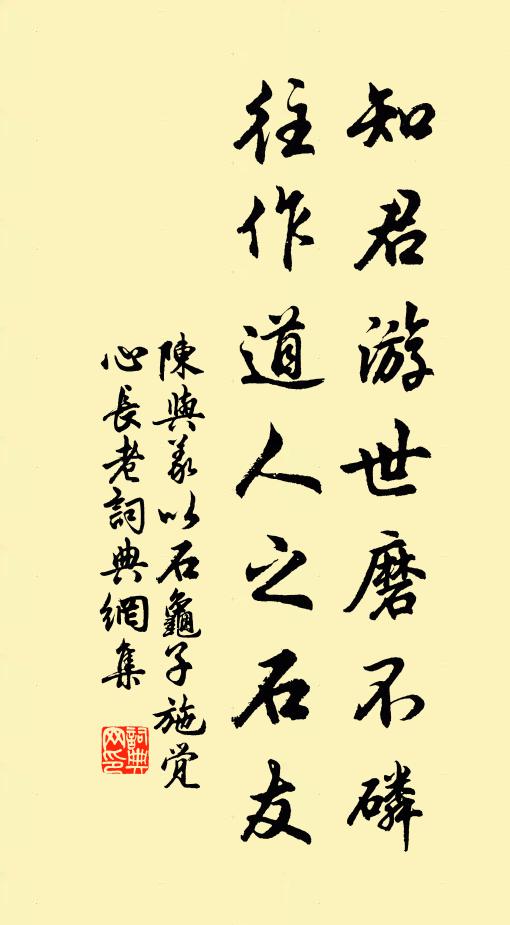 知君游世磨不磷
往作道人之石友
陳與義以石龜子施觉
心長老詞典網集
詞典網印